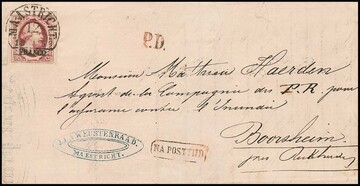 MAASTRICHT
FRANCO
P.D.
Monsieur Mathieu Haerden
Agent de la Compagnie des P.R. pour
l'assurance contre l'Incendie
Boorsheim
près
MAESTRICHT.
NA POSTTIJD